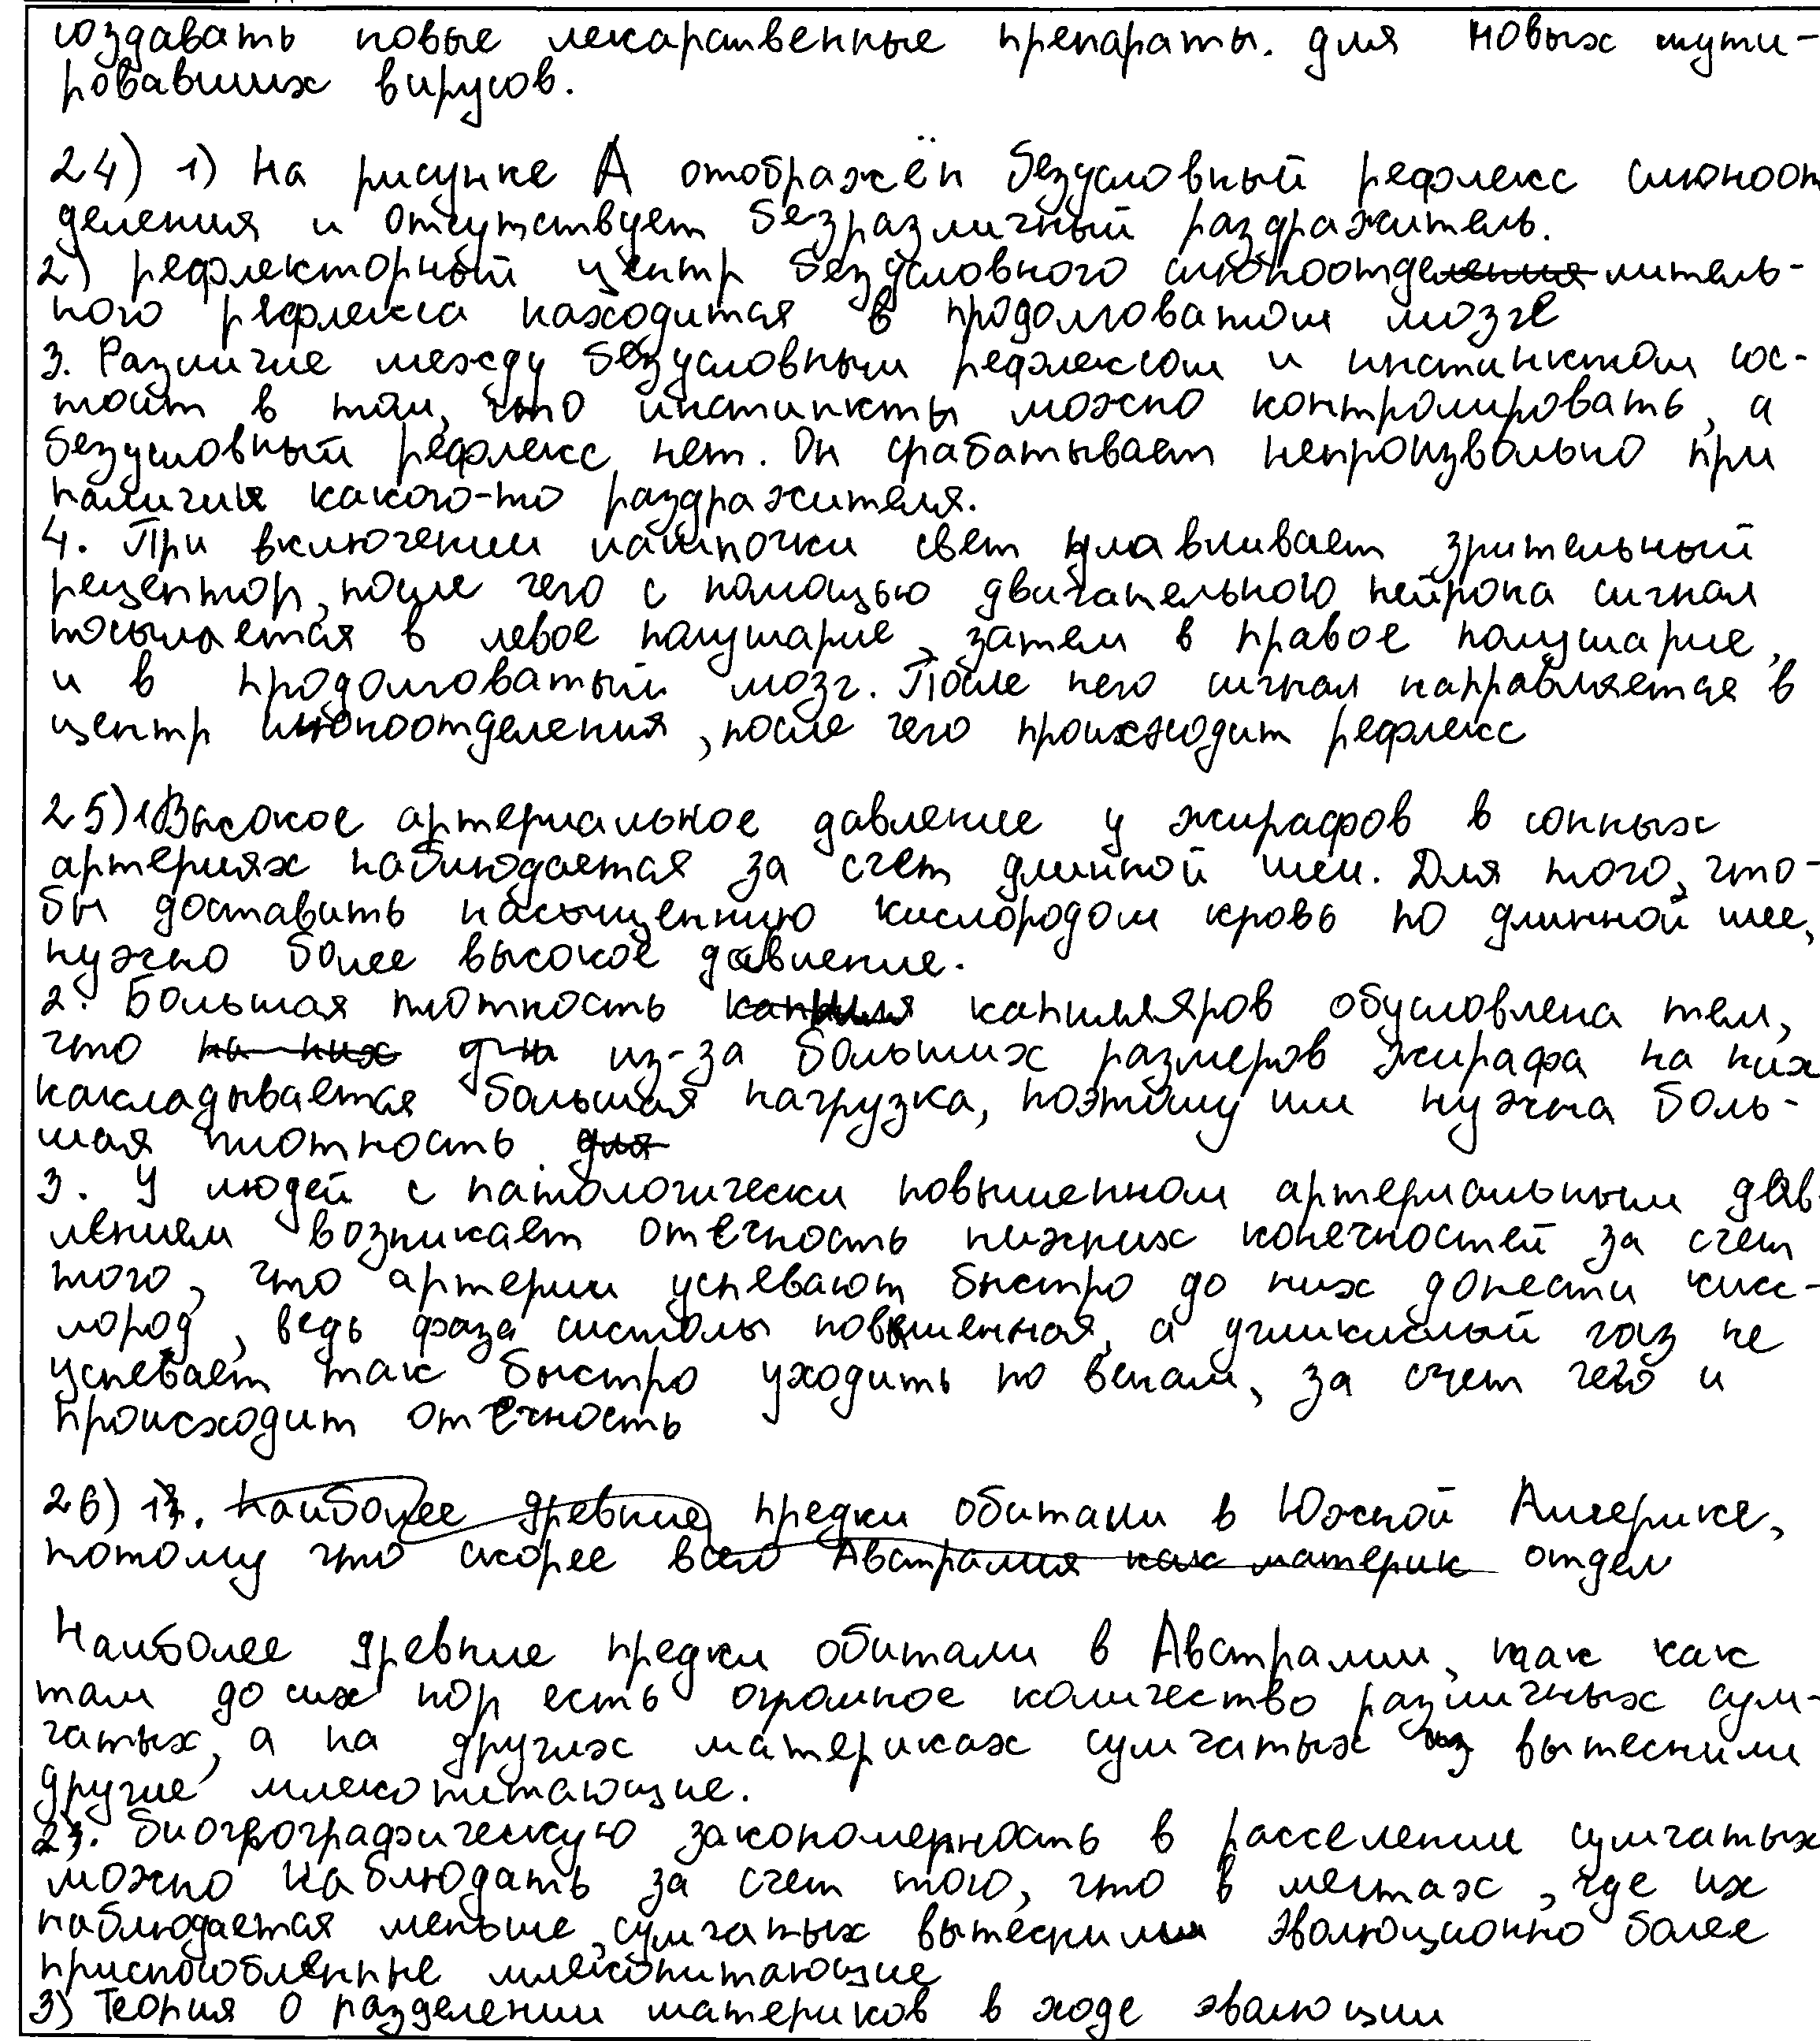 создавать новые лекарственные препараты. для новых мути-
ровавших вирусов.
24) 1) На рисунке А отображён безусловный рефлекс слюноот
деления и отсутствует безразличный раздражитель.
2) рефлекторный центр безусловного слюноотделения литель-
ного рефлекса находится в продолговатом мозге
3. Различие между безусловным рефлексом и инстинктом сос-
тоит в том, что инстинкты можно контролировать, а
безусловный рефлекс нет. Он срабатывает непроизвольно при
наличии какого-то раздражителя.
4. При включении лампочки свет улавливает зрительный
рецептор, после чего с помощью двигательного нейрона сигнал
посылается в левое полушарие, затем в правое полушарие,
и в продолговатый мозг. После него сигнал направляется в
центр слюноотделения, после чего происходит рефлекс
25) 1) Высокое артериальное давление у жирафов в сонных
артериях наблюдается за счет длинной шеи. Для того, что-
бы доставить насыщенную кислородом кровь по длинной шее,
нужно более высокое давление.
2. Большая плотность капилляров обусловлена тем,
что на них из-за больших размеров жирафа на них
накладывается большая нагрузка, поэтому им нужна боль-
шая плотность. для
3. У людей с патологически повышенном артериальным дав-
лением возникает отёчность нижних конечностей за счет
того, что артерии успевают быстро до них донести кис-
лород, ведь фаза систолы повышенная, а углекислый газ не
успевает так быстро уходить по венам, за счет чего и
происходит отёчность
26) 1). Наиболее древние предки обитали в Южной Америке,
потому что скорее всего Австралия как материк отдел
Наиболее древние предки обитали в Австралии, так как
там до сих пор есть огромное количество различных сум-
чатых, а на других материках сумчатых вытеснили
другие млекопитающие.
2). Биогеографическую закономерность в расселении сумчатых
можно наблюдать за счет того, что в местах, где их
наблюдается меньше, сумчатых вытеснили эволюционно более
приспособленные млекопитающие
3) Теория о разделении материков в ходе эволюции